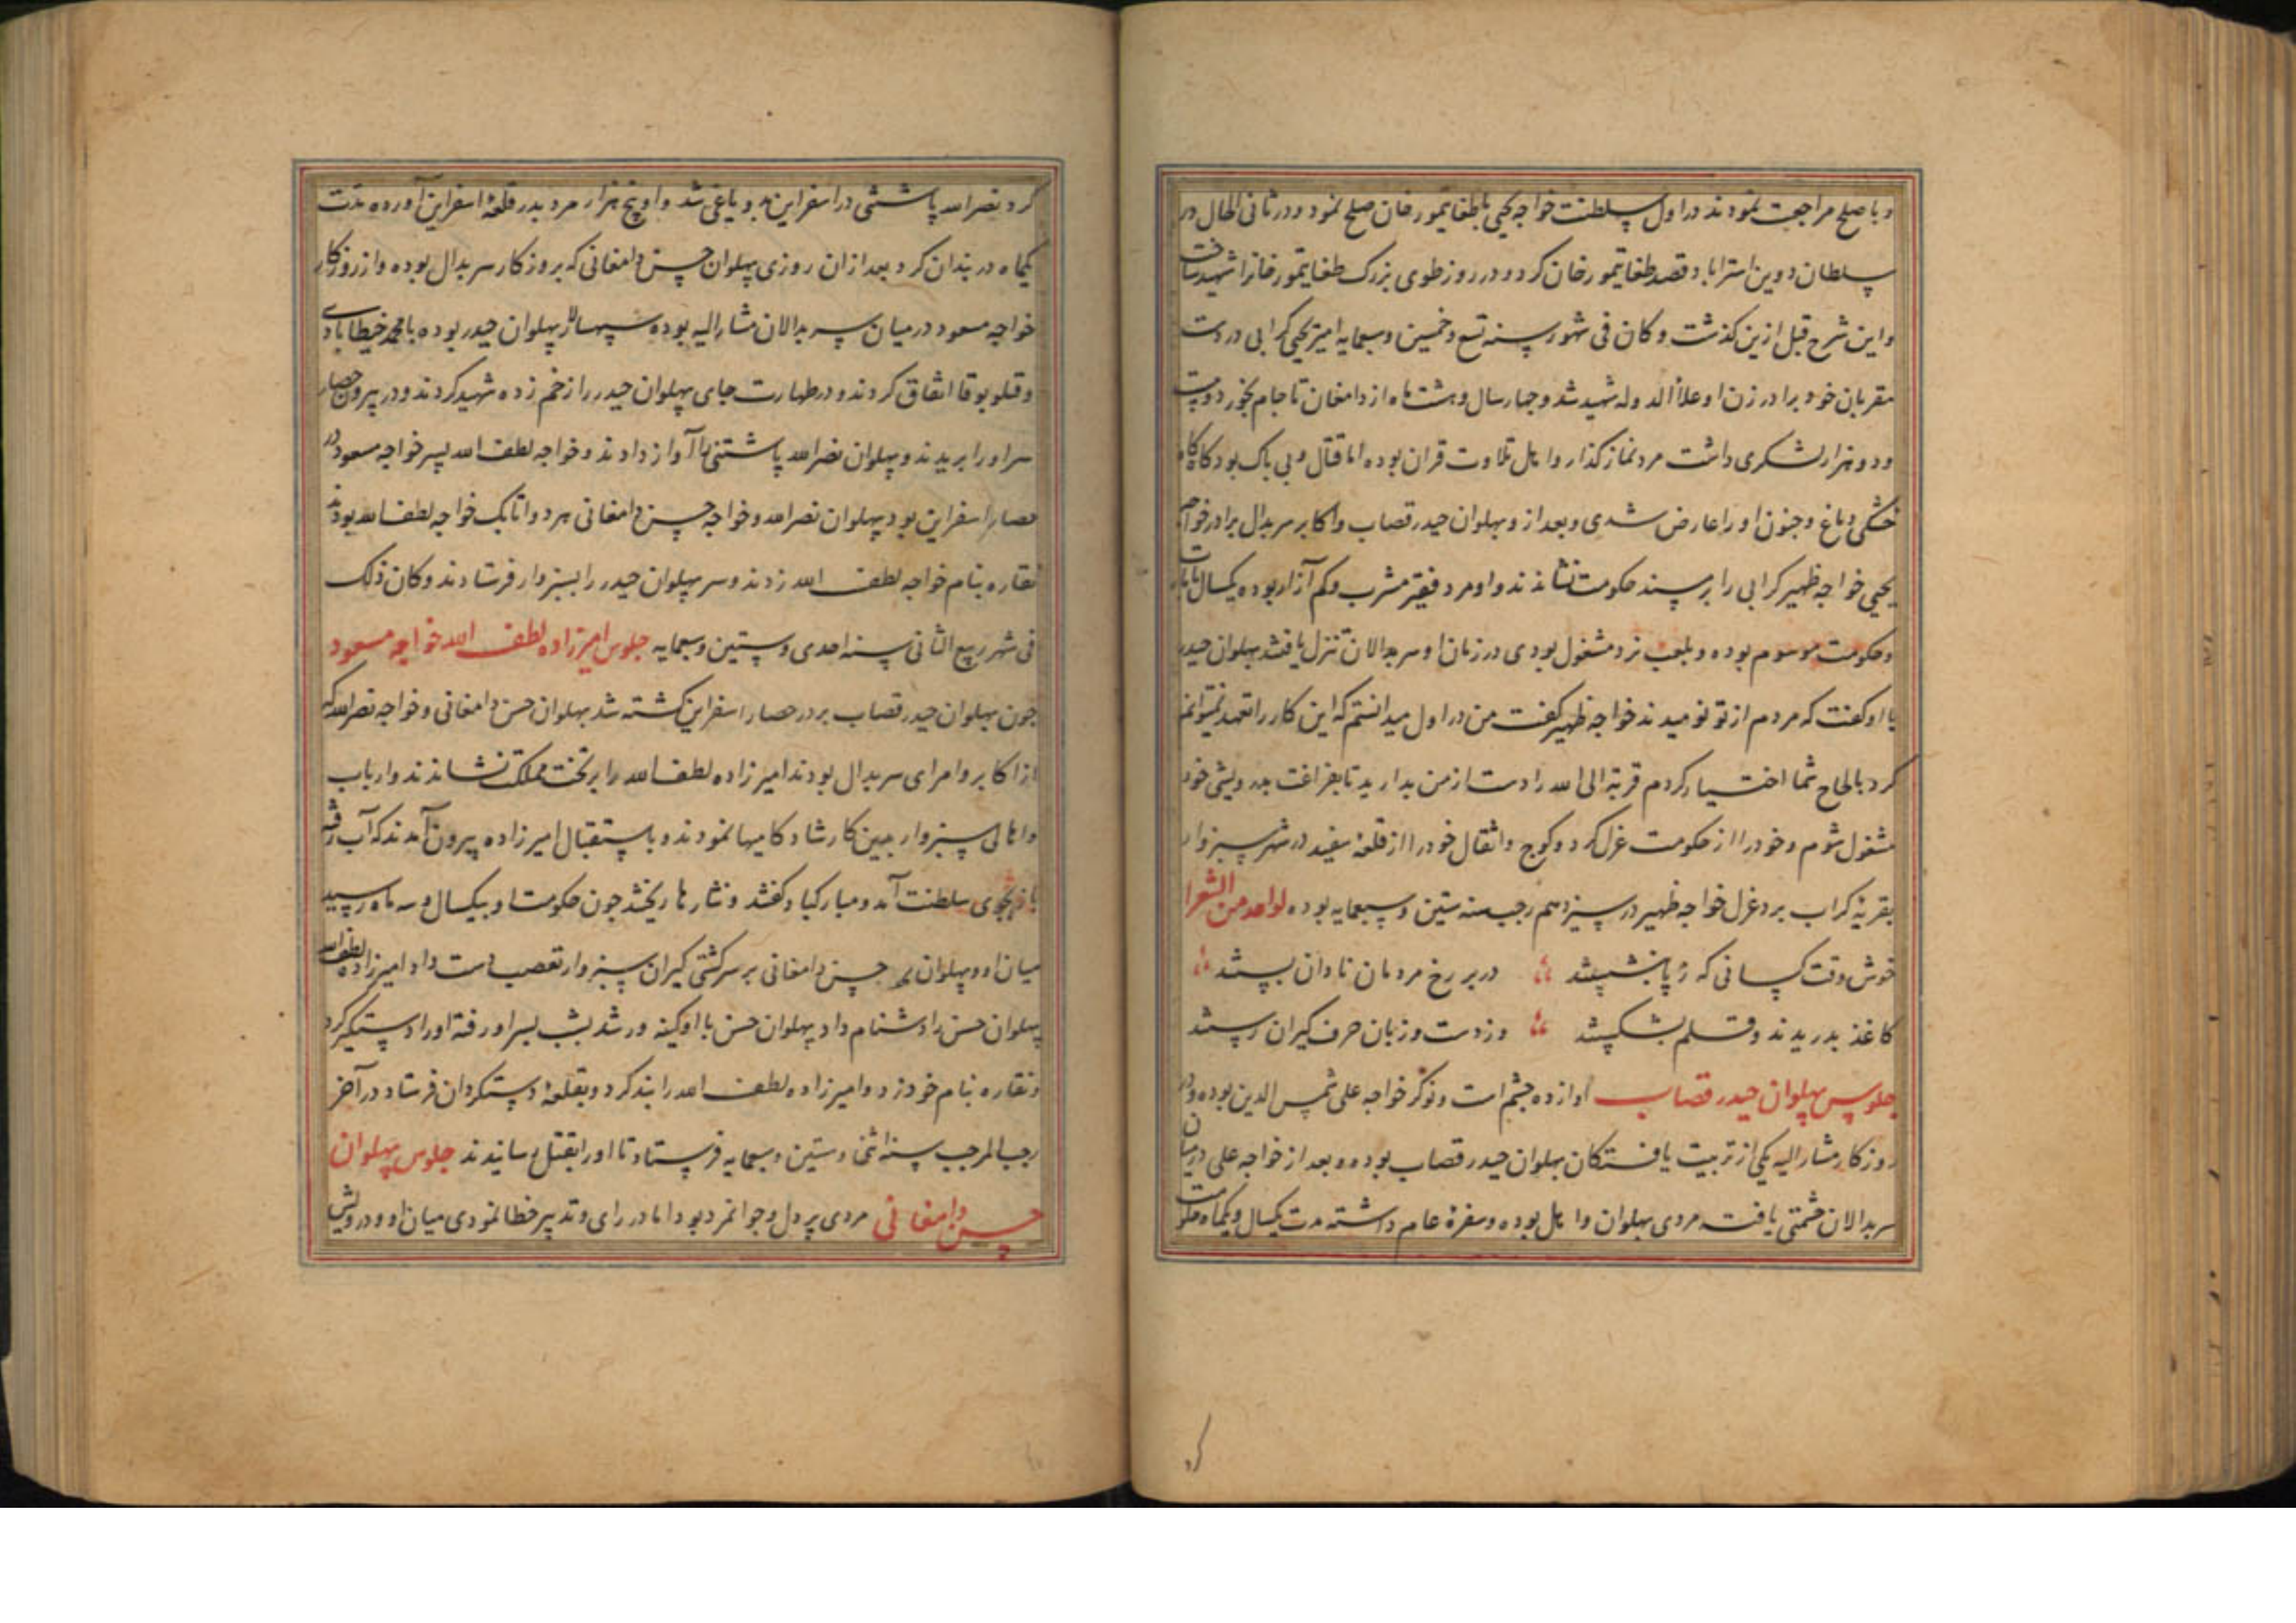 و با صلح مراجعت نمودند در اول سلطنت خواجه یحیی با طغایتمور خان صلح نمود و در ثانی الحال در
سلطان دوین استراباد قصد طغایتمور خان کرد و در روز طوی بزرک طغایتمور خانرا شهید ساخت
و این شرح قبل ازین کذشت و کان فی شهور سنه تسع و خمسین و سبعمایه امیر یحیی کرابی در دست
مقربان خود برادر زن او علاً الدوله شهید شد و چهار سال و هشت ماه از دامغان تا جام بخورد و بیست
و دو هزار لشکری داشت مرد نماز کذار و مایل تلاوت قران بوده اما قتال و بی باک بود کاه کاه
خشکی دماغ و جنون او را عارض شدی و بعد از و پهلوان حیدر قصاب و اکابر سربدال برادر خواجه
یحیی خواجه ظهیر کرابی را بر مسند حکومت نشاندند و او مرد فقیر مشرب و کم آزار بوده یکسال
و حکومت موسوم بوده و بلعب نرد مشغول بودی در زمان او سربدالان تنزل یافتند پهلوان حیدر
با او کفت که مردم از تو نومیدند خواجه ظهیر کفت من در اول میدانستم که این کار را تعهد نمیتوانم
کرد بالحاح شما اختیار کردم قربة الی الله را دست از من بدارید تا بفراغت بدرویشی خود
مشغول شوم و خود را از حکومت عزل کرد و کوچ و اثقال خود را از قلعهٔ سفید در شهر سبزوار
بقریهٔ کراب برد عزل خواجه ظهیر در سیزدهم رجب سنه ستین و سبعمایه بوده لواحد من الشعرا
خوش وقت کسانی که ز پا بنشستند در بر رخ مردمان نادان بستند
کاغذ بدریدند و قلم بشکستند وز دست و زبان حرف کیران رستند
جلوس پهلوان حیدر قصاب او از ده جشم است و نوکر خواجه علی شمس الدین بوده و در
روزکار مشارالیه یکی از تربیت یافتکان پهلوان حیدر قصاب بوده و بعد از خواجه علی در میان
سربدالان حشمتی یافت مردی پهلوان و مایل بوده و سفرهٔ عام داشته مدت یکسال و یکماه حکومت
کرد نصر الله باشتنی در اسفراین بدو یاغی شد و او پنج هزار مرد بدر قلعهٔ اسفراین آورده مدت
یکماه در بندان کرد و بعد از ان روزی پهلوان حسن دامغانی که بروزکار سربدال بوده و از روزکار
خواجه مسعود در میان سربدالان مشارالیه بوده سپهسالار پهلوان حیدر بوده با محمد خیطابادی
و قتلو بوقا اتفاق کردند و در طهارت جای پهلوان حیدر را زخم زده شهید کردند و در بیرون حصار
سر او را بریدند و پهلوان نصر الله باشتنی را آواز دادند و خواجه لطف الله پسر خواجه مسعود در
حصار اسفراین بود پهلوان نصر الله و خواجه حسن دامغانی هر دو اتابک خواجه لطف الله بودند
نقاره بنام خواجه لطف الله زدند و سر پهلوان حیدر را بسبزوار فرستادند و کان ذلک
فی شهر ربیع الثانی سنه احدی و ستین و سبعمایه جلوس امیرزاده لطف الله خواجه مسعود
چون پهلوان حیدر قصاب بر در حصار اسفراین کشته شد پهلوان حسن دامغانی و خواجه نصر الله که
از اکابر و امرای سربدال بودند امیرزاده لطف الله را بر تخت مملکت نشاندند و ارباب
و اهالی سبزوار بدین کار شادکامیها نمودند و باستقبال امیرزاده بیرون آمدند که آب رفته
باز بجوی سلطنت آمد و مبارکباد کفتند و نثارها ریختند چون حکومت او بیکسال و سه ماه رسید
میان او و پهلوان حسن دامغانی بر سر کشتی کیران سبزوار تعصب دست داد امیرزاده لطف الله
پهلوان حسن را دشنام داد پهلوان حسن با او کینه ور شد بشب بسر او رفته او را دستکیر کرد
و نقاره بنام خود زد و امیرزاده لطف الله را بند کرد و بقلعهٔ دستکردان فرستاد در آخر
رجب المرجب سنه اثنی و ستین و سبعمایه فرستاد تا او را بقتل رسانیدند جلوس پهلوان
حسن دامغانی مردی پر دل و جوانمرد بود اما در رای و تدبیر خطا نمودی میان او و درویش